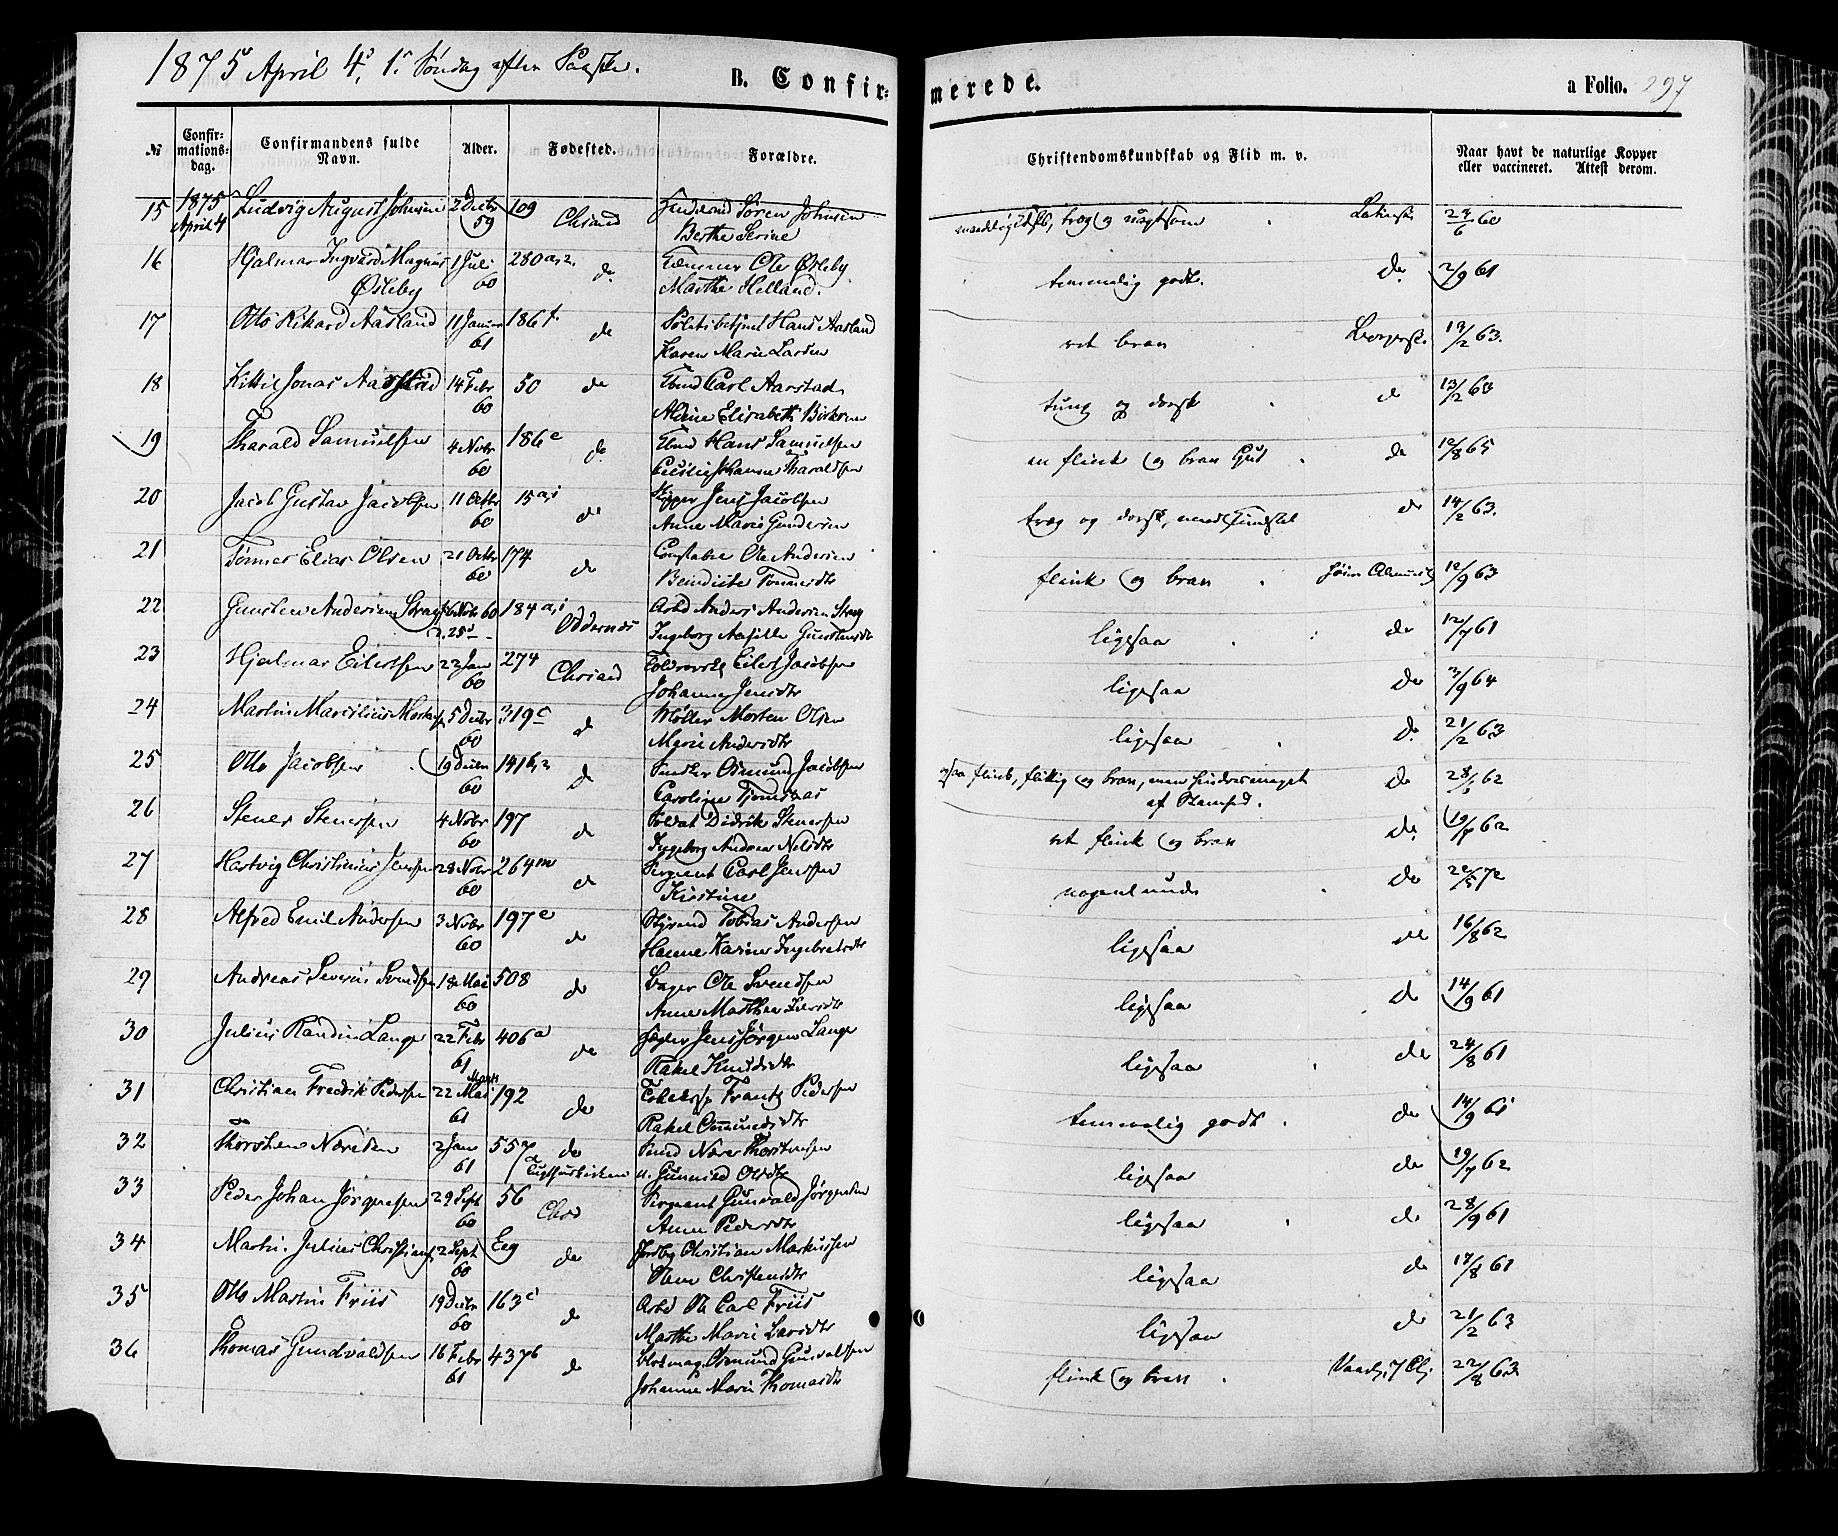 1875 April 4, 1. Søndag efter Paaske.
B. Confirmerede.
a Folio. 297
№
Confirmations-dag.
Confirmandens fulde Navn.
Alder.
Fødested.
Forældre.
Christendomskundskab og Flid m. v.
Naar havt de naturlige Kopper eller vaccineret. Attest derom.
15 1875 April 4 Ludvig August Johnsen 2 Decbr 59 109 Chrsand Søren Johnsen
Berthe Serine 60
16 Hjalmar Ingvard Magnus Østeby 1 Juli 60 280 a, 2. do Ole Østeby
Marthe Helland. temmelig godt. do 2/9 61
17 Otto Rikard Aasland 11 Januar 61 186 f. do Politibetjent Hans Aasland
Karen Marie Larsen ret brav Borgersk. 19/2 63.
18 Kittil Jonas Aarstad 14 Febr 60 50 do Carl Aarstad
Elisabeth tung og dorsk do 13/2 60
19 Tharald Samuelsen 4 Novbr 60 186 e do Hans Samuelsen
Tharaldsen en flink og brav Gut do 12/8 65
20 Jacob Gustav Jacobsen 11 Octbr 60 15 a, i do Skipper Jens Jacobsen
Anne Marie Gundersen træg og dorsk, do 14/2 63.
21 Tønnes Elias Olsen 21 Octbr 60 174 do Constabel Ole Andersen
Bendicte Tønnesdtr flink og brav 12/9 63
22 Gunsten Andersen Stray 60 184 a, i Oddernæs Arbd Anders Andersen Stray
Ingeborg Gunstensdtr ligesaa do 12/7 61
23 Hjalmar Eilertsen 23 Jan 60 274 Chrsand Eilert Jacobsen
Johanne Jensdtr ligesaa do 3/9 64
24 Martin Marcelius 5 Decbr 60 319 c do Møller Morten Olsen
Marie Andersdtr ligesaa do 21/2 63
25 Otto Jacobsen 19 Decbr 60 141 b, 2 do Snedker Osmund Jacobsen
Caroline flink, flittig og brav, men hindres meget
af Stamhed. do 62
26 Stener Stenersen 4 Novbr 60 197 do Soldat Didrik Stenersen
Ingeborg Andrea Nilsdtr ret flink og brav do 62
27 Hartvig Christinius Jensen 28 Novbr 60 264 m do Sergeant Carl Jensen
Kirstine nogenlunde do 22/5 72
28 Alfred Emil Andersen 3 Novbr 60 197 e do Styrmd Tobias Andersen
Hanne Karine Ingebretsdtr ligesaa do 16/8 62
29 Andreas Severin Svendsen 18 Mai 60 508 do Bager Ole Svendsen
Anne Marthea ligesaa do 14/9 61
30 Julius Lange 22 Febr 61 406 a do Jens Jørgen Lange
Rakel Knudsdtr ligesaa do 24/8 61
31 Christian Fredrik Pedersen 22 Mai Marts 61 192 do Frantz Pedersen
Rakel Osmundsdtr temmelig godt do 14/9 61
32 Thorsten Næresen 2 Jan 61 557 a do Tugthuskirken Thorstensen
Gunnild Olsdtr ligesaa do 19/7 62
33 Peder Johan Jørgensen 29 Sept 60 56 Chrs Sergeant Gunvald Jørgensen
Anne Pedersdtr ligesaa do 28/9 61
34 Martin Julius Christians. 2 Sept 60 Eeg do Christian Markussen
Christensdtr ligesaa do 17/8 61
35 Otto Martin Friis 19 Decbr 60 163 c do Arbd Ole Carl Friis
Marthe Marie Larsdtr ligesaa do 21/2 63
36 Thomas Gundvaldsen 16 Febr 61 437 b do Osmund Gunvaldsen
Johanne Marie Thomasdtr flink og brav 22/8 63